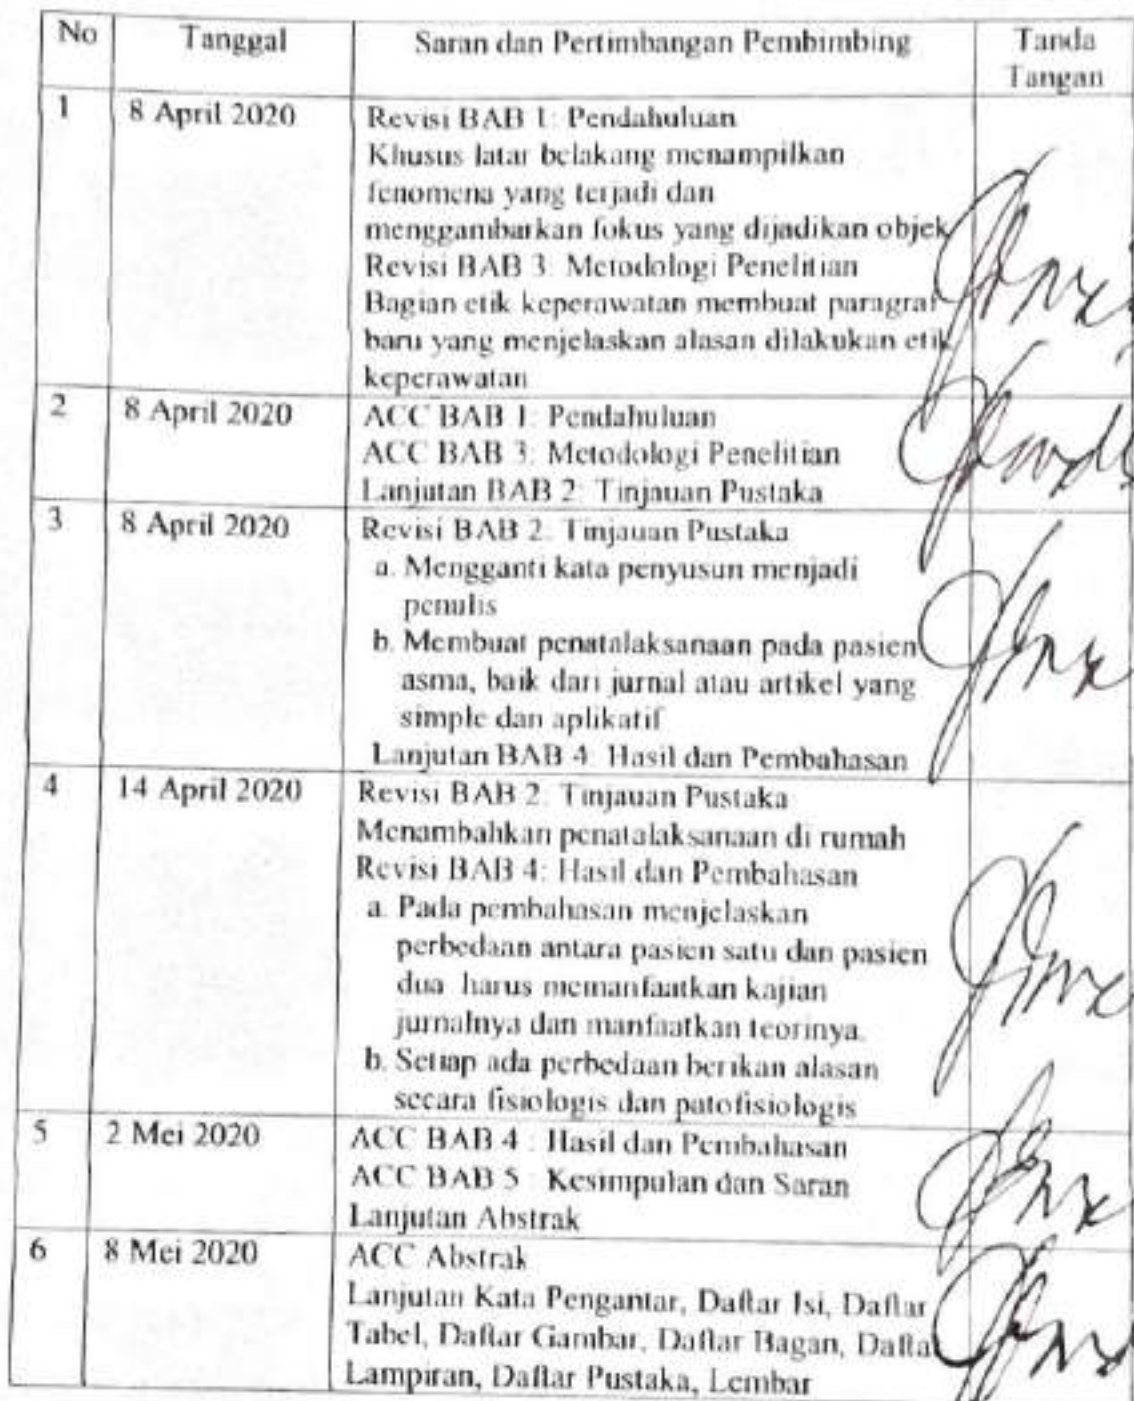 No Tanggal Saran dan Pertimbangan Pembimbing Tanda
Tangan
1 8 April 2020 Revisi BAB 1: Pendahuluan
Khusus latar belakang menampilkan
fenomena yang terjadi dan
menggambarkan fokus yang dijadikan objek
Revisi BAB 3: Metodologi Penelitian
Bagian etik keperawatan membuat paragraf
baru yang menjelaskan alasan dilakukan etik
keperawatan
2 8 April 2020 ACC BAB 1: Pendahuluan
ACC BAB 3: Metodologi Penelitian
Lanjutan BAB 2: Tinjauan Pustaka
3 8 April 2020 Revisi BAB 2: Tinjauan Pustaka
a. Mengganti kata penyusun menjadi
penulis
b. Membuat penatalaksanaan pada pasien
asma, baik dari jurnal atau artikel yang
simple dan aplikatif
Lanjutan BAB 4: Hasil dan Pembahasan
4 14 April 2020 Revisi BAB 2: Tinjauan Pustaka
Menambahkan penatalaksanaan di rumah
Revisi BAB 4: Hasil dan Pembahasan
a. Pada pembahasan menjelaskan
perbedaan antara pasien satu dan pasien
dua harus memanfaatkan kajian
jurnalnya dan manfaatkan teorinya.
b. Setiap ada perbedaan berikan alasan
secara fisiologis dan patofisiologis
5 2 Mei 2020 ACC BAB 4 : Hasil dan Pembahasan
ACC BAB 5 : Kesimpulan dan Saran
Lanjutan Abstrak
6 8 Mei 2020 ACC Abstrak
Lanjutan Kata Pengantar, Daftar Isi, Daftar
Tabel, Daftar Gambar, Daftar Bagan, Dafta
Lampiran, Daftar Pustaka, Lembar